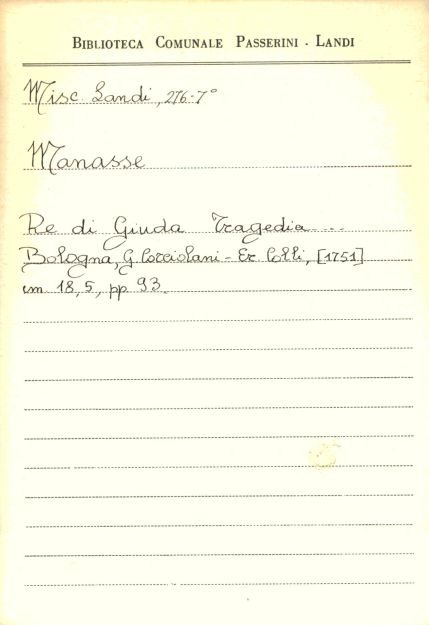 BIBLIOTECA COMUNALE PASSERINI - LANDI
Misc Landi, 276-7°
Manasse
Re di Giuda Tragedia...
Bologna, G. Corciolani - Er. Colli, [1751]
cm 18,5, pp 93.